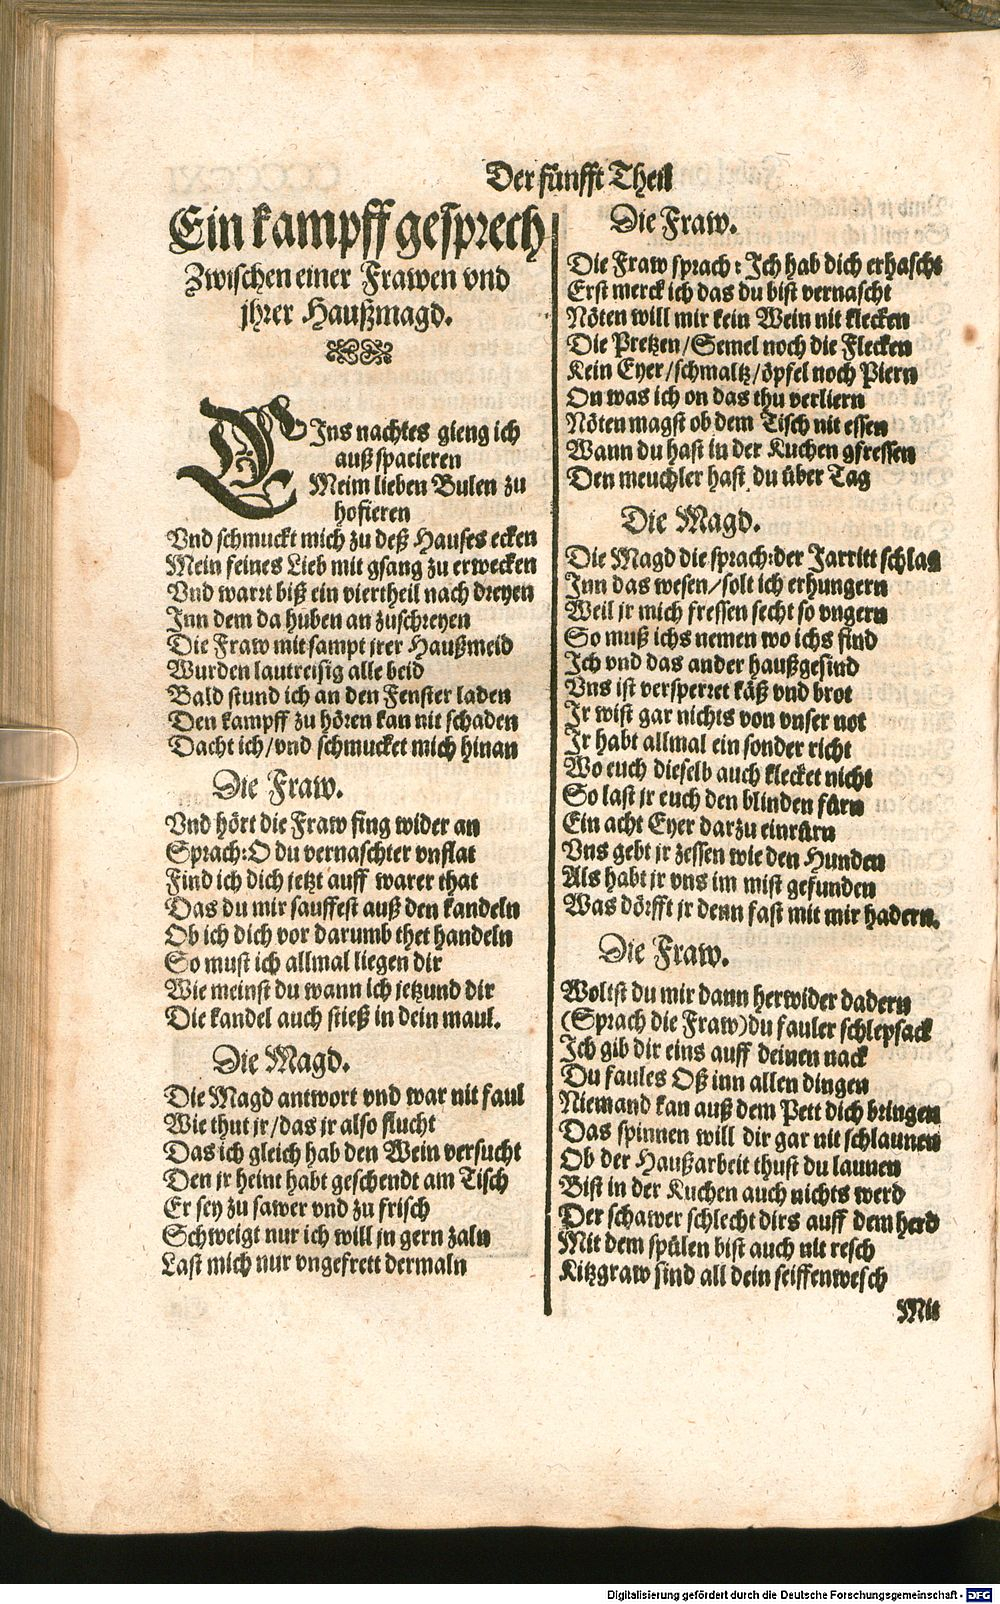 Der fünfft Theil
Ein kampff gesprech
Zwischen einer Frawen vnd
jhrer Haußmagd.
EIns nachtes gieng ich
auß spacieren
Meim lieben Bulen zu
hofieren
Vnd schmuckt mich zu deß Hauses ecken
Mein feines Lieb mit gsang zu erwecken
Vnd warrt biß ein viertheil nach dreyen
Inn dem da huben an zuschreyen
Die Fraw mit sampt jrer Haußmeid
Wurden lautreisig alle beid
Bald stund ich an den Fenster laden
Den kampff zu hören kan nit schaden
Dacht ich/vnd schmucket mich hinan
Die Fraw.
Vnd hört die Fraw fing wider an
Sprach:O du vernaschter vnflat
Find ich dich jetzt auff warer that
Das du mir sauffest auß den kandeln
Ob ich dich vor darumb thet handeln
So must ich allmal liegen dir
Wie meinst du wann ich jetzund dir
Die kandel auch stieß in dein maul.
Die Magd.
Die Magd antwort vnd war nit faul
Wie thut jr/das jr also flucht
Das ich gleich hab den Wein versucht
Den jr heint habt geschendt am Tisch
Er sey zu sawer vnd zu frisch
Schweigt nur ich will jn gern zaln
Last mich nur vngefrett dermaln
Die Fraw.
Die Fraw sprach: Ich hab dich erhascht
Erst merck ich das du bist vernascht
Nöten will mir kein Wein nit klecken
Die Pretzen/Semel noch die Flecken
Kein Eyer/schmaltz/öpfel noch Piern
On was ich on das thu verliern
Nöten magst ob dem Tisch nit essen
Wann du hast in der Kuchen gfressen
Den meuchler hast du über Tag
Die Magd.
Die Magd die sprach:der Jarritt schlag
Inn das wesen/solt ich erhungern
Weil jr mich fressen secht so vngern
So muß ichs nemen wo ichs find
Ich vnd das ander haußgesind
Vns ist versperret käß vnd brot
Ir wist gar nichts von vnser not
Ir habt allmal ein sonder richt
Wo euch dieselb auch klecket nicht
So last jr euch den blinden fürn
Ein acht Eyer darzu einrürn
Vns gebt jr zessen wie den Hunden
Als habt jr vns im mist gefunden
Was dörfft jr denn fast mit mir hadern.
Die Fraw.
Woltst du mir dann herwider dadern
(Sprach die Fraw)du fauler schlepsack
Ich gib dir eins auff deinen nack
Du faules Oß inn allen dingen
Niemand kan auß dem Pett dich bringen
Das spinnen will dir gar nit schlaunen
Ob der Haußarbeit thust du launen
Bist in der Kuchen auch nichts werd
Der schawer schlecht dirs auff dem herd
Mit dem spülen bist auch nit resch
Kitzgraw sind all dein seiffenwesch
Mit
Digitalisierung gefördert durch die Deutsche Forschungsgemeinschaft - DFG